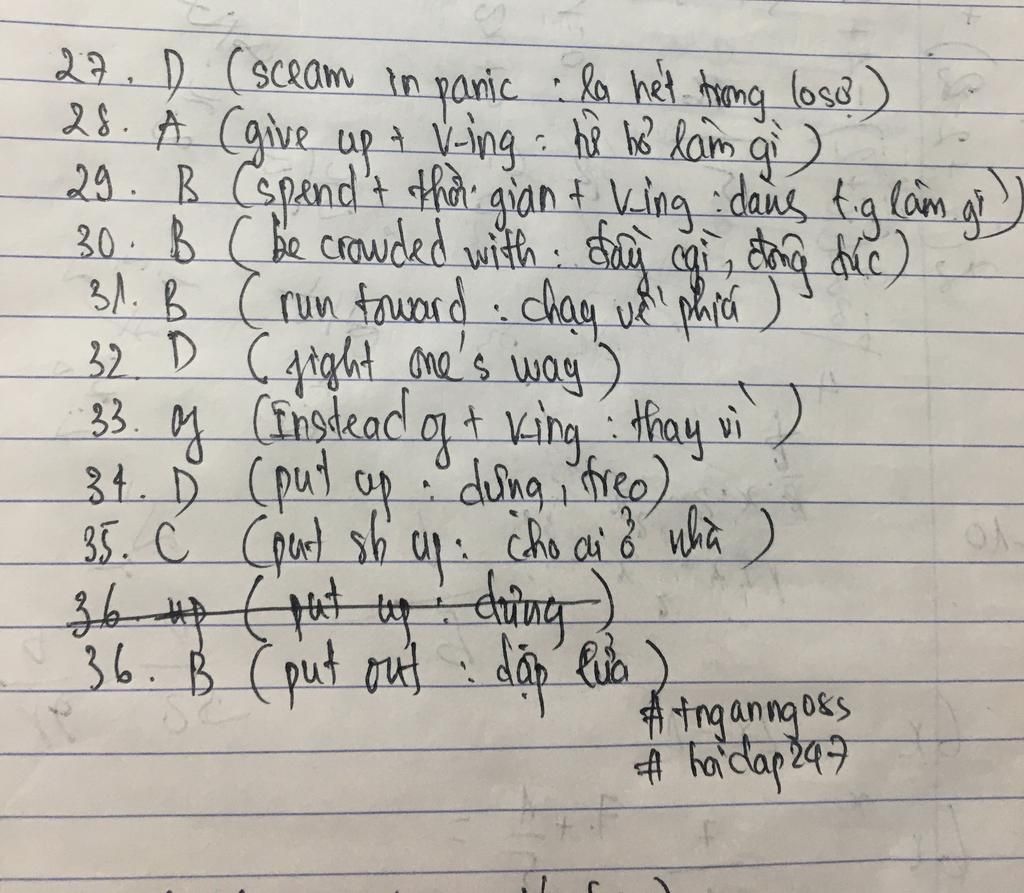 27. D (sceam in panic : la hét trong lo sợ)
28. A (give up + V-ing : từ bỏ làm gì)
29. B (spend + thời gian + V-ing : dành t.g làm gì)
30. B (be crowded with : đầy cgì, đông đúc)
31. B (run toward : chạy về phía)
32. D (fight one's way)
33. of (Instead of + V-ing : thay vì)
34. D (put up : dựng, treo)
35. C (put sb up : cho ai ở nhà)
36 up (put up : dựng)
36. B (put out : dập lửa)
# tnganng085
# hoidap247